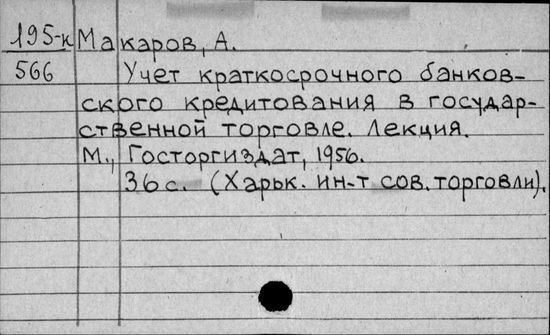 195-к Макаров, А.
566 Учет краткосрочного банков-
ского кредитования в государ-
ственной торговле. Лекция.
М., Госторгиздат, 1956.
36 с. (Харьк. ин-т сов. торговли).